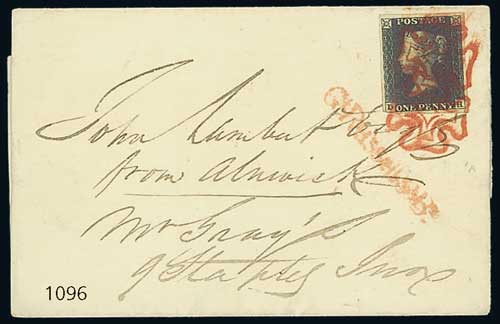 POSTAGE
ONE PENNY
John Lambert Esqr
from Alnwick
Mr Gray's
9 Staples Inn
1096